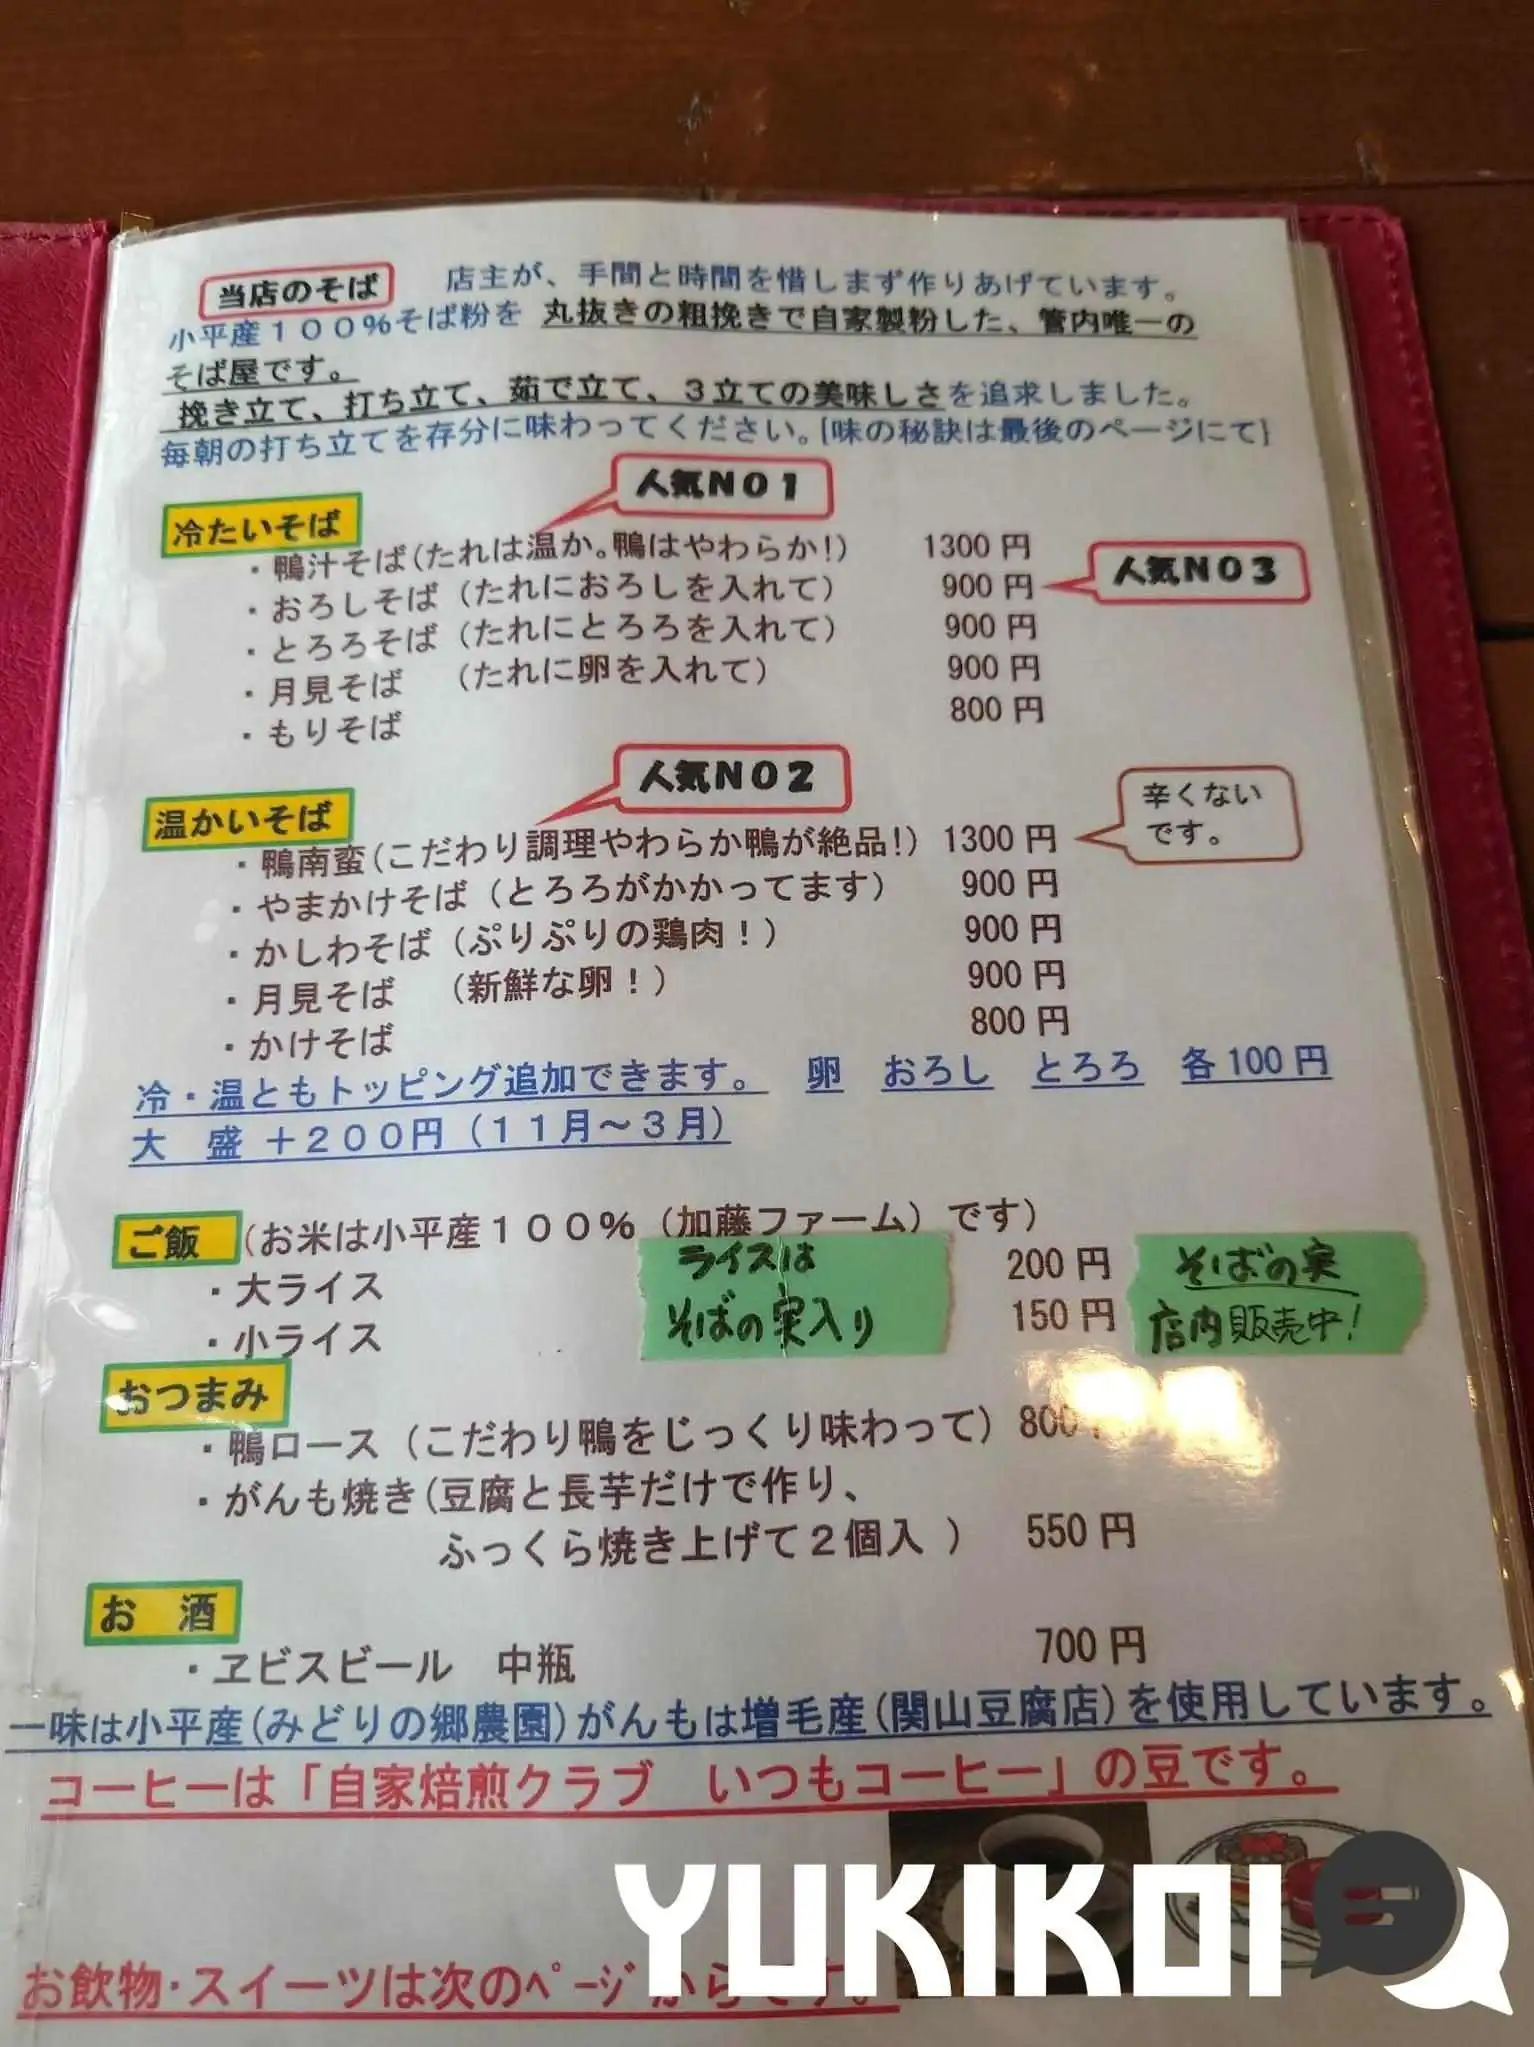 当店のそば　店主が、手間と時間を惜しまず作りあげています。
小平産１００％そば粉を 丸抜きの粗挽きで自家製粉した、管内唯一の
そば屋です。
挽き立て、打ち立て、茹で立て、３立ての美味しさを追求しました。
毎朝の打ち立てを存分に味わってください。{味の秘訣は最後のページにて}
人気NO1
冷たいそば
・鴨汁そば(たれは温か。鴨はやわらか!) 1300円
・おろしそば (たれにおろしを入れて) 900円 人気NO3
・とろろそば (たれにとろろを入れて) 900円
・月見そば (たれに卵を入れて) 900円
・もりそば 800円
人気NO2
温かいそば
・鴨南蛮(こだわり調理やわらか鴨が絶品!) 1300円 辛くない
です。
・やまかけそば (とろろがかかってます) 900円
・かしわそば (ぷりぷりの鶏肉！) 900円
・月見そば (新鮮な卵！) 900円
・かけそば 800円
冷・温ともトッピング追加できます。 卵 おろし とろろ 各100円
大　盛 ＋２００円（１１月～３月）
ご飯 (お米は小平産１００％（加藤ファーム）です)
・大ライス 200円
・小ライス 150円
ライスは
そばの実入り
そばの実
店内販売中!
おつまみ
・鴨ロース (こだわり鴨をじっくり味わって) 800
・がんも焼き(豆腐と長芋だけで作り、
ふっくら焼き上げて２個入 ) 550円
お　酒
・ヱビスビール　中瓶 700円
一味は小平産(みどりの郷農園)がんもは増毛産(関山豆腐店)を使用しています。
コーヒーは「自家焙煎クラブ　いつもコーヒー」の豆です。
お飲物・スイーツは次のﾍﾟｰｼﾞからです。
YUKIKOI